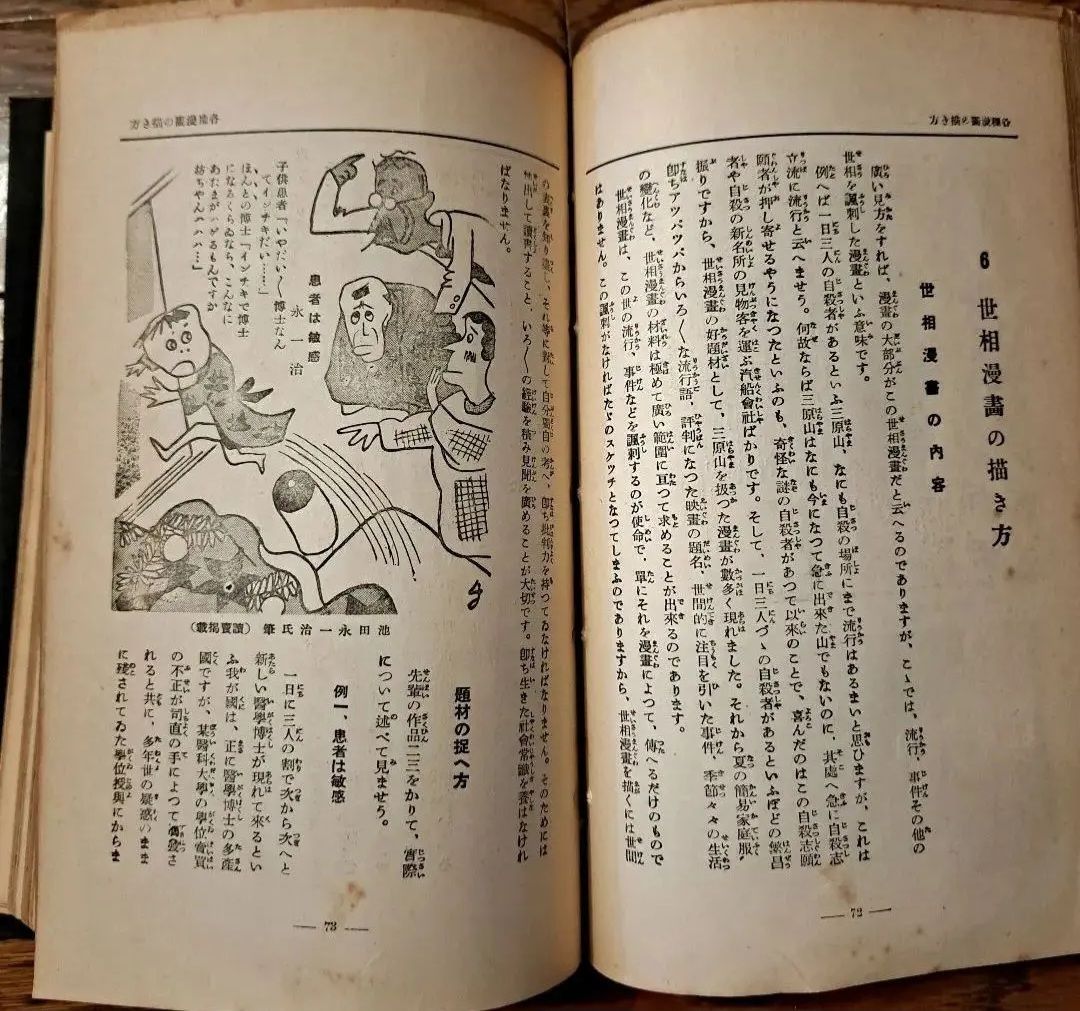 各種漫畫の描き方
6 世相漫畫の描き方
世相漫畫の内容
廣い見方をすれば、漫畫の大部分がこの世相漫畫だと云へるのでありますが、こゝでは、流行、事件その他の
世相を諷刺した漫畫といふ意味です。
例へば一日三人の自殺者があるといふ三原山、なにも自殺の場所にまで流行はあるまいと思ひますが、これは
立派に流行と云へませう。何故ならば三原山はなにも今になつて急に出來た山でもないのに、其處へ急に自殺志
願者が押し寄せるやうになつたといふのも、奇怪な謎の自殺者があつて以來のことで、喜んだのはこの自殺志願
者や自殺の新名所の見物客を運ぶ汽船會社ばかりです。そして、一日三人づゝの自殺者があるといふほどの繁昌
振りですから、世相漫畫の好題材として、三原山を扱つた漫畫が數多く現れました。それから夏の簡易家庭服、
卽ちアツパツパからいろ〱な流行語、評判になつた映畫の題名、世間的に注目を引いた事件、季節々々の生活
の變化など、世相漫畫の材料は極めて廣い範圍に亙つて求めることが出來るのであります。
世相漫畫は、この世の流行、事件などを諷刺するのが使命で、單にそれを漫畫によつて、傳へるだけのもので
はありません。この諷刺がなければたゞのスケツチとなつてしまふのでありますから、世相漫畫を描くには世間
— 72 —
各種漫畫の描き方
の表裏を知り盡し、それ等に對して自分獨自の考へ、卽ち批判力を持つてゐなければなりません。そのためには
して讀書すること、いろ〱の經驗を積み見聞を廣めることが大切です。卽ち生きた社會常識を養はなけれ
ばなりません。
患者は敏感
永一治
子供患者「いやだい〱博士なん
てインチキだい……」
ほんとの博士「インチキで博士
になるくらゐなら、こんなに
あたまがハゲるもんですか
坊ちやんハハハ…」
池田永一治氏筆（讀賣揭載）
題材の捉へ方
先輩の作品二三をかりて、實際
について述べて見ませう。
例一、患者は敏感
一日に三人の割で次から次へと
新しい醫學博士が現れて來るとい
ふ我が國は、正に醫學博士の多產
國ですが、某醫科大學の學位賣買
の不正が司直の手によつて摘發さ
れると共に、多年世の疑惑のまま
に殘されてゐた學位授與にからま
— 73 —